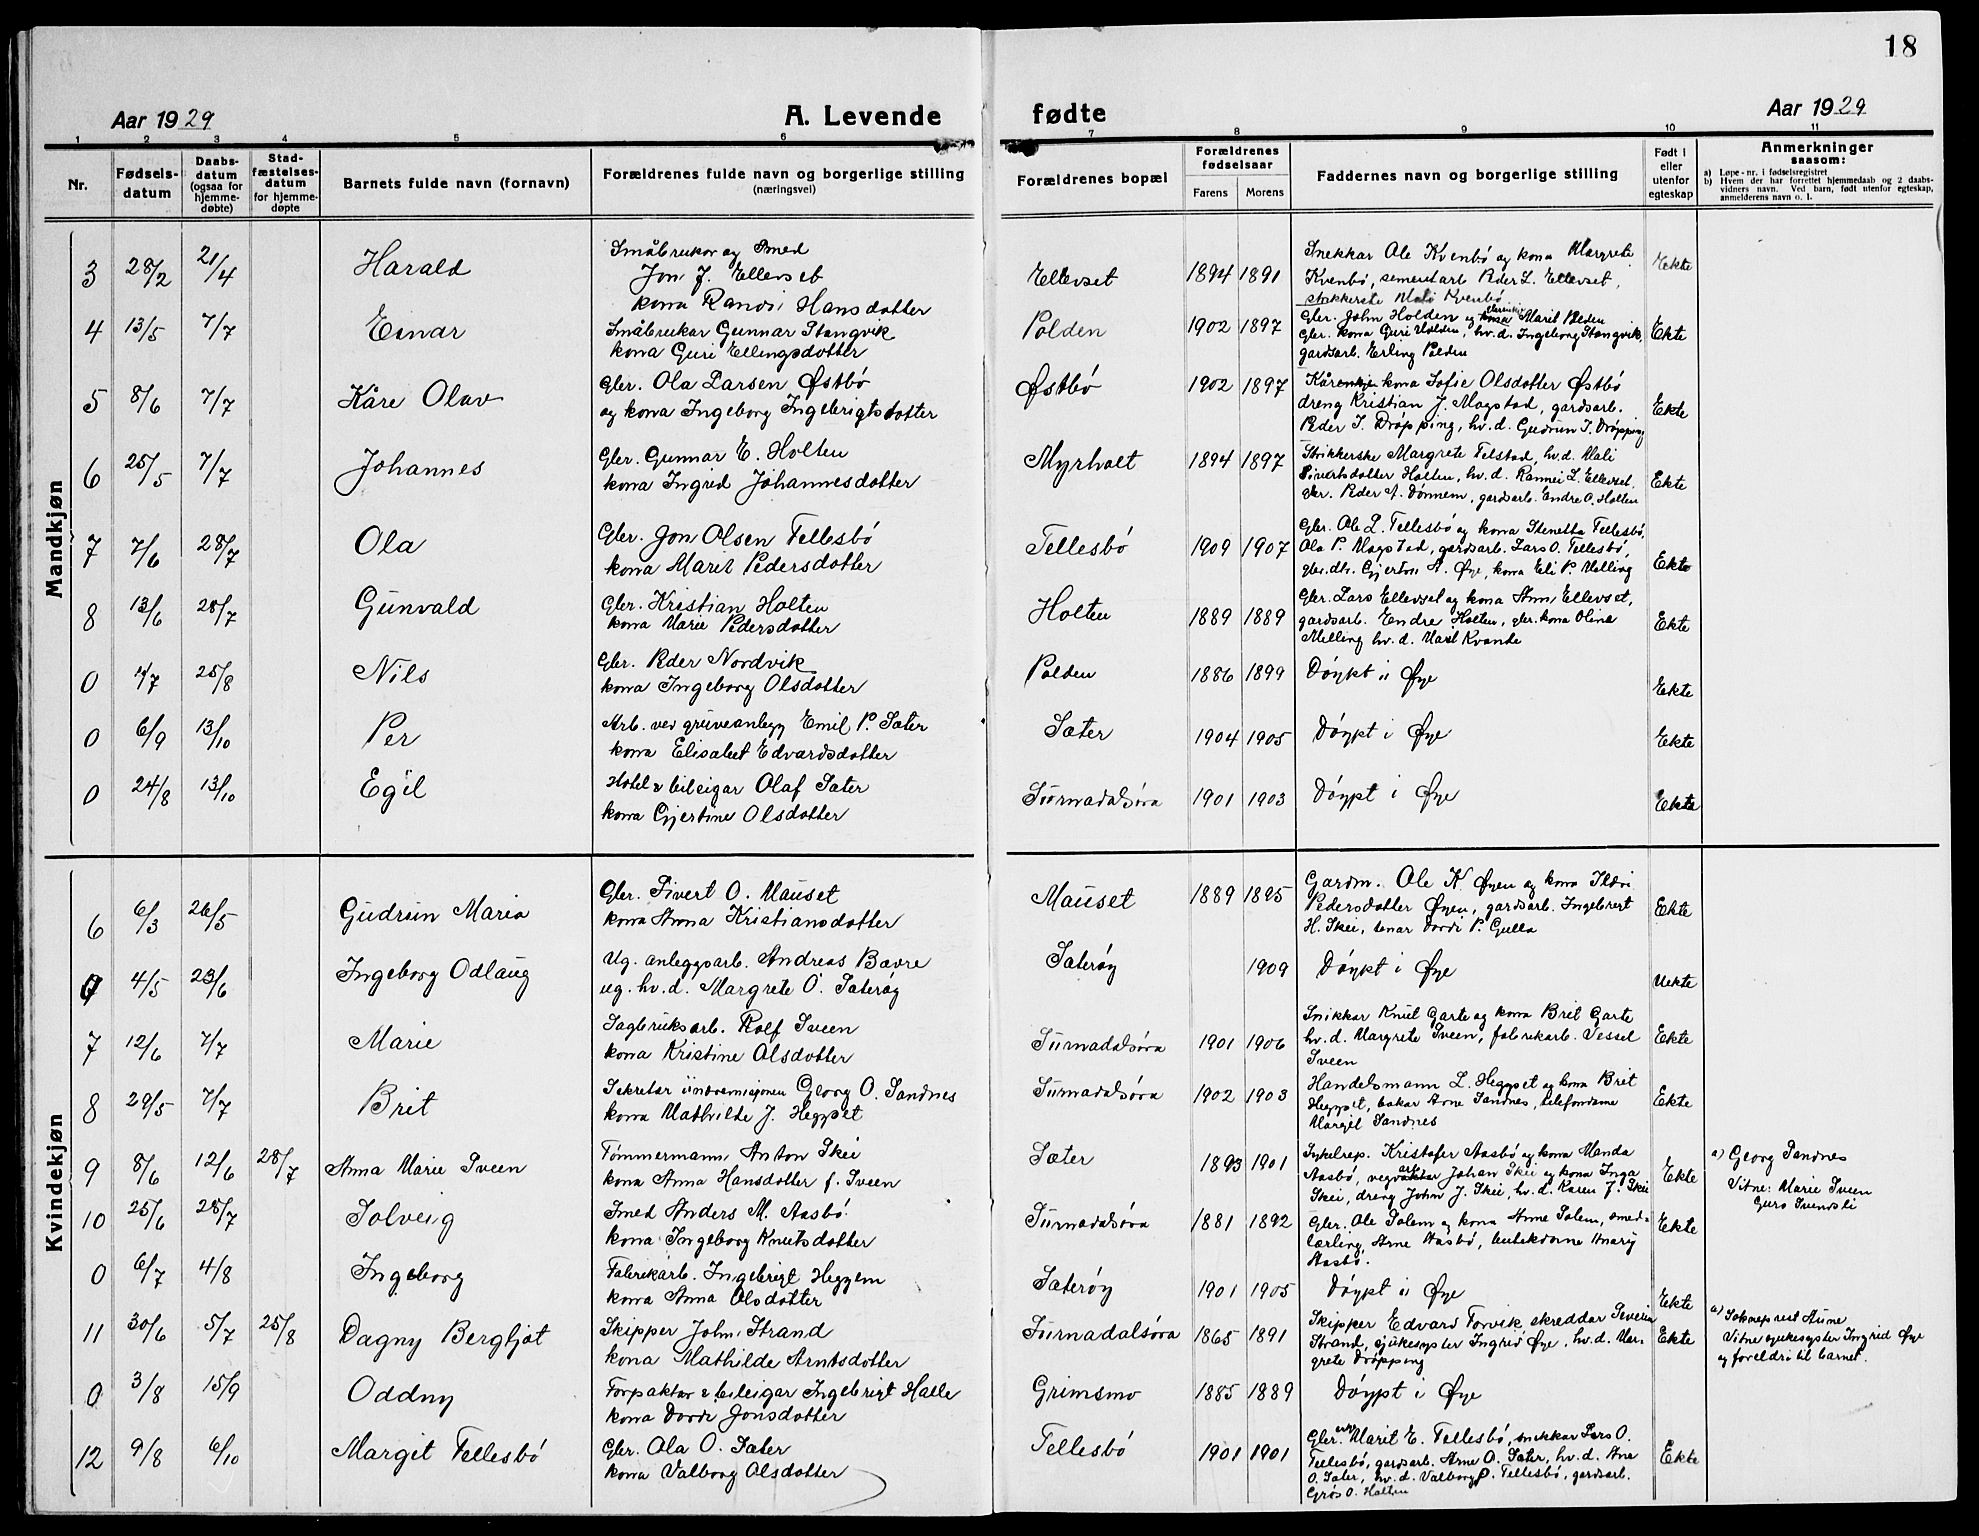 18
Aar 1929 A. Levende fødte Aar 1929
1 2 3 4 5 6 7 8 9 10 11
Nr. Fødsels-datum Daabs-datum (ogsaa for hjemme-døbte) Stad-fæstelses-datum for hjemme-døpte Barnets fulde navn (fornavn) Forældrenes fulde navn og borgerlige stilling (næringsvei) Forældrenes bopæl Forældrenes fødselsaar Farens Morens Faddernes navn og borgerlige stilling Født i eller utenfor egteskap Anmerkninger saasom:
a) Løpe-nr. i fødselsregistret
b) Hvem der har forrettet hjemmedaab og 2 daabs-
vidners navn. Ved barn, født utenfor egteskap,
anmelderens navn o. l.
Mandkjøn
3 28/2 21/4 Harald Småbrukar og Smed
Jon J. Ellevset
kona Randi Hansdotter
Ellevset 1894 1891 Snekkar Ole Kvenbø og kona Margrete
Kvenbø, sementarb Peder L. Ellevset,
strikkerske Mali Kvenbø Ekte
4 13/5 7/7 Einar Småbrukar Gunnar Stangvik
kona Guri Ellingsdotter
Polden 1902 1897 Gbr. John Holden og Marit Polden
Gbr. kona Guri Holden, hv.d. Ingeborg Stangvik,
gardsarb. Erling Polden Ekte
5 8/6 7/7 Kåre Olav Gbr. Ola Larsen Østbø
og kona Ingeborg Ingebrigtsdotter
Østbø 1902 1897 Kårenkje kona Sofie Olsdotter Østbø
dreng Kristian J. Mogstad, gardsarb.
Peder I. Drøpping, hv.d. Gudrun I. Drøpping Ekte
6 25/5 7/7 Johannes Gbr. Gunnar E. Holten
kona Ingrid Johannesdotter
Myrholt 1894 1897 Strikkerske Margrete Telstad, hv.d. Mali
Sivertsdotter Holten, hv.d. Rannei L. Ellevset.
Gbr. Peder A. Dønnem, gardsarb. Endre O. Holten Ekte
7 7/6 28/7 Ola Gbr. Jon Olsen Tellesbø
kona Marit Pedersdotter
Tellesbø 1909 1907 Gbr. Ole L. Tellesbø og kona Stenetta Tellesbø,
Ola P. Mogstad, gardsarb. Lars O. Tellesbø,
Øye, kona Eli P. Melling Ekte
8 13/6 28/7 Gunvald Gbr. Kristian Holten
kona Marie Pedersdotter
Holten 1889 1889 Gbr. Lars Ellevset og kona Ane Ellevset,
gardsarb. Endre Holten, gbr. kona Oline
Melling hv.d. Marit Kvande Ekte
0 1/7 25/8 Nils Gbr. Peder Nordvik
kona Ingeborg Olsdotter
Polden 1886 1899 Døypt i Øye Ekte
0 6/9 13/10 Per Arb. ved gruveanlegg Emil P. Sæter
kona Elisabet Edvardsdotter
Sæter 1904 1905 Døypt i Øye Ekte
0 24/8 13/10 Egil Hotel & bileigar Olaf Sæter
kona Gjertine Olsdotter
Surnadalsøra 1901 1903 Døypt i Øye Ekte
Kvindekjøn
6 6/3 26/5 Gudrun Maria Gbr. Sivert O. Mauset
kona Anna Kristiansdotter
Mauset 1889 1895 Gardm. Ole K. Øyen og kona Ildri
Pedersdotter Øyen, gardsarb. Ingebrert
H. Skei, tenar Dordi P. Gulla Ekte
0 4/5 23/6 Ingeborg Odlaug Ug. anleggsarb. Andreas Bævre
ug. hv.d. Margrete O. Sæterøy
Sæterøy 1909 Døypt i Øye Uekte
7 12/6 7/7 Marie Sagbruksarb. Rolf Sveen
kona Kristine Olsdotter
Surnadalsøra 1901 1906 Snikkar Knut Garte og kona Brit Garte
hv.d. Margrete Sveen, fabrikarb. Vessel
Sveen Ekte
8 29/5 7/7 Brit Sekretær i indremisjonen Georg O. Sandnes
kona Mathilde J. Heggset
Surnadalsøra 1902 1903 Handelsmann L. Heggset og kona Brit
Heggset, bakar Arne Sandnes, telefondame
Margit Sandnes Ekte
9 8/6 12/6 28/7 Anna Marie Sveen Tømmermann Anton Skei
kona Anna Hansdotter f. Sveen
Sæter 1893 1901 Sykelrep. Kristofer Aasbø og kona Manda
Aasbø, vegvaktar Johan Skei og kona Inga
Skei, dreng John J. Skei, hv.d. Karen J. Skei Ekte
a) Georg Sandnes
Vitne: Marie Sveen
Guro Svendsli
10 25/6 28/7 Solveig Smed Anders M. Aasbø
kona Ingeborg Knutsdotter
Surnadalsøra 1881 1892 Gbr. Ole Solem og kona Anne Solem, smed-
lærling Arne Aasbø, butikdame Mary
Aasbø. Ekte
0 6/7 4/8 Ingeborg Fabrikarb. Ingebrigt Heggem
kona Anna Olsdotter
Sæterøy 1901 1905 Døypt i Øye Ekte
11 30/6 5/7 25/8 Dagny Bergljot Skipper John Strand
kona Mathilde Arntsdotter
Surnadalsøra 1865 1891 Skipper Edvard Torvik skreddar Severin
Strand, sjukesyster Ingrid Øye, hv.d. Mar-
grete Drøpping Ekte
a) Aune
Vitne sjukesyster Ingrid Øye
og foreldri til barnet.
0 3/8 15/9 Oddny Forpaktar & bileigar Ingebrigt Halle
kona Dordi Jonsdotter
Grimsmo 1885 1889 Døypt i Øye
12 9/8 6/10 Margit Tellesbø Gbr. Ola O. Sæter
kona Valborg Olsdotter
Tellesbø 1901 1901 Gbr. Marit E. Tellesbø, snikkar Lars O.
Tellesbø, gardsarb. Arne O. Sæter, hv.d. Ane
O. Sæter, hv.d. Valborg P. Tellesbø, gardsarb.
Grøs O. Holten Ekte